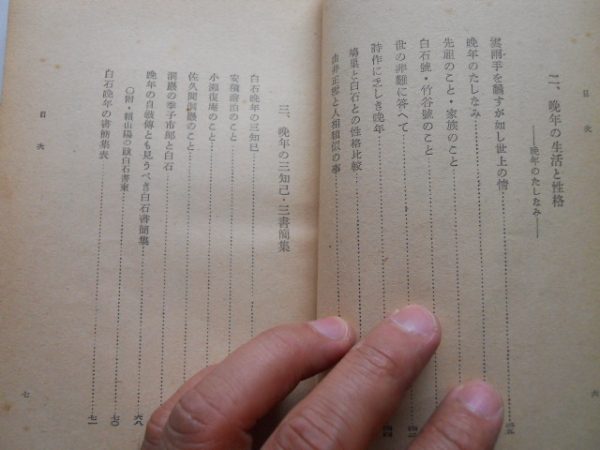 目次
二、晩年の生活と性格
――晩年のたしなみ――
雲雨手を飜すが如し世上の情
晩年のたしなみ
先祖のこと・家族のこと
白石號・竹谷號のこと
世の非難に答へて
詩作に乏しき晩年
鳩巣と白石との性格比較
由井正雪と人相類似の事
六
三、晩年の三知己・三書簡集
白石晩年の三知己
安積澹泊のこと
小瀬復庵のこと
佐久間洞巖のこと
洞巖の季子市郎と白石
晩年の自敍傳とも見うべき白石書簡集 六八
〇附・頼山陽の跋白石書柬 七〇
白石晩年の書簡集表 七一
目次
七